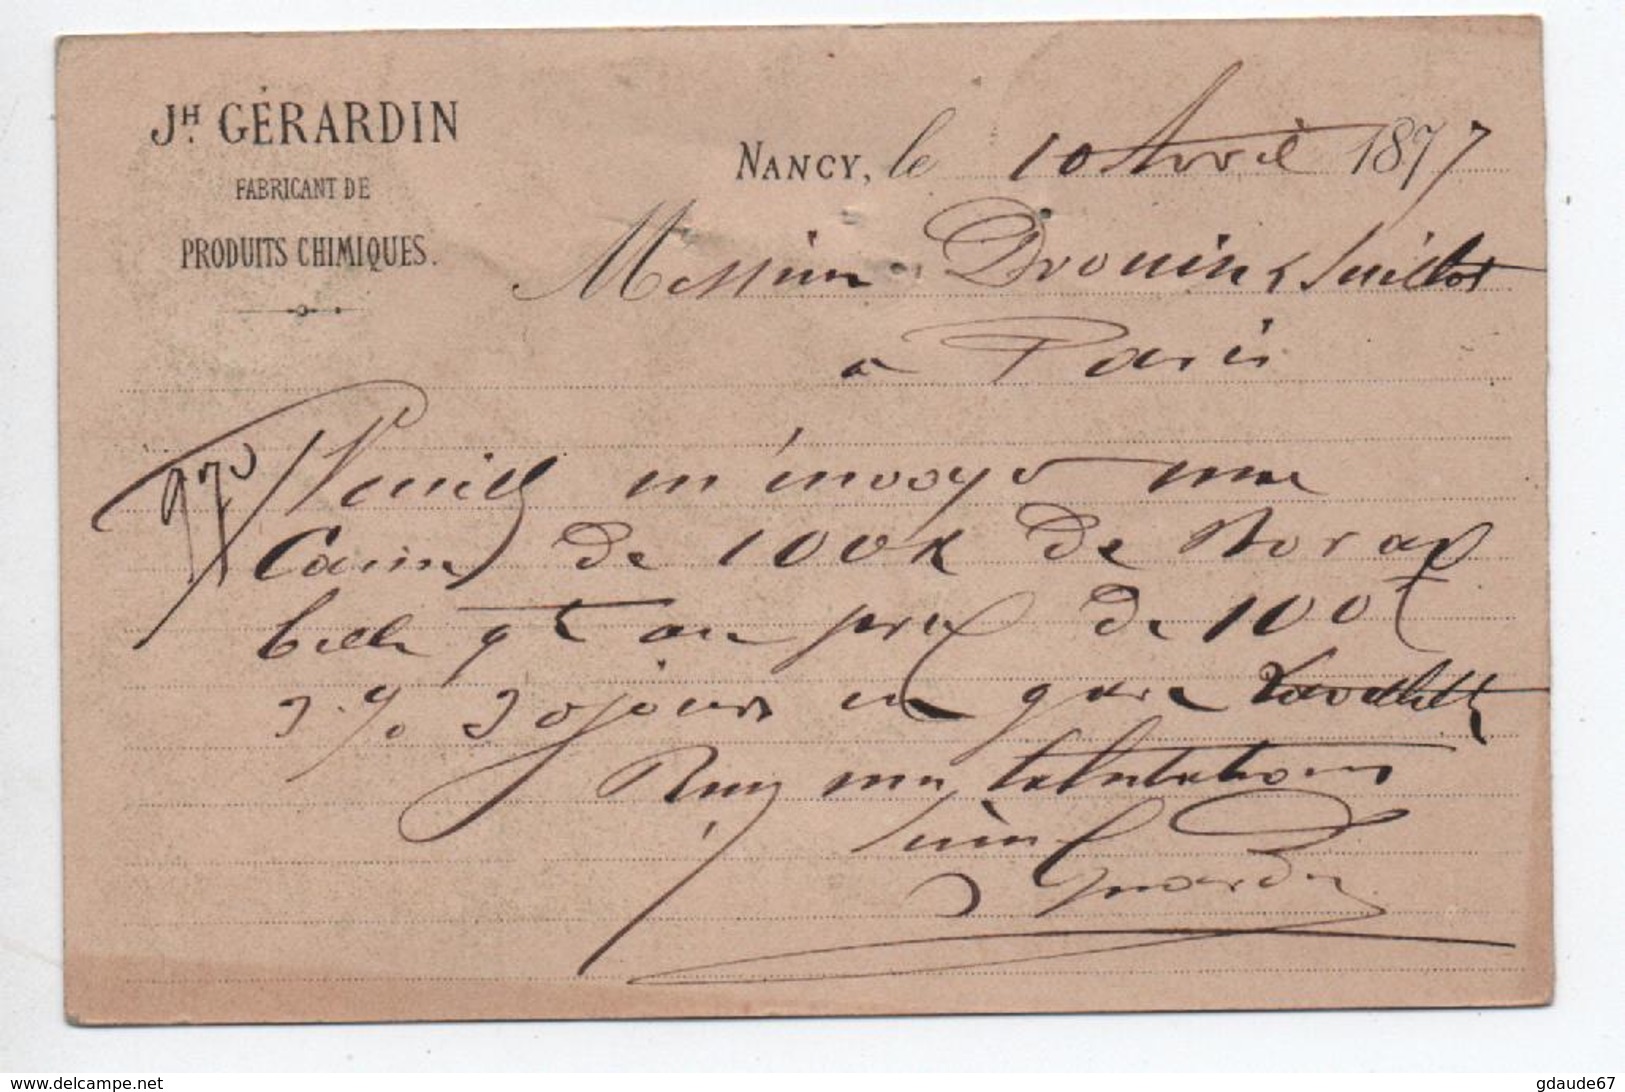 JH. GÉRARDIN
FABRICANT DE
PRODUITS CHIMIQUES.
NANCY, le 10 Avril 1877
Messieurs Drouin &
à Paris
970
Veuillez m'envoyer une
Caisse de 100 K de Borax
belle qté au prix de 100f
3 % 30 jours en gare
Recevez mes salutations
Gérardin
www.delcampe.net
gdaude67